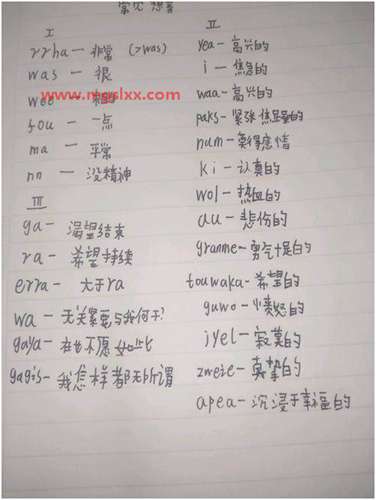 常见想音
I
rrha — 非常 (>was)
was — 很
wee
www.mgslxx.com
fou — 一点
ma — 平常
nn — 没精神
III
ga — 渴望结束
ra — 希望持续
erra — 大于ra
wa — 无关紧要与我何干?
gaya — 在也不愿如此
gagis — 我怎样都无所谓
II
yea — 高兴的
i — 焦急的
waa — 高兴的
paks — 紧张焦显的
num — 莫得感情
ki — 认真的
wol — 热血的
au — 悲伤的
granme — 勇气十足的
touwaka — 希望的
guwo — 愤怒的
iyel — 寂寞的
zweie — 真挚的
apea — 沉浸于幸福的